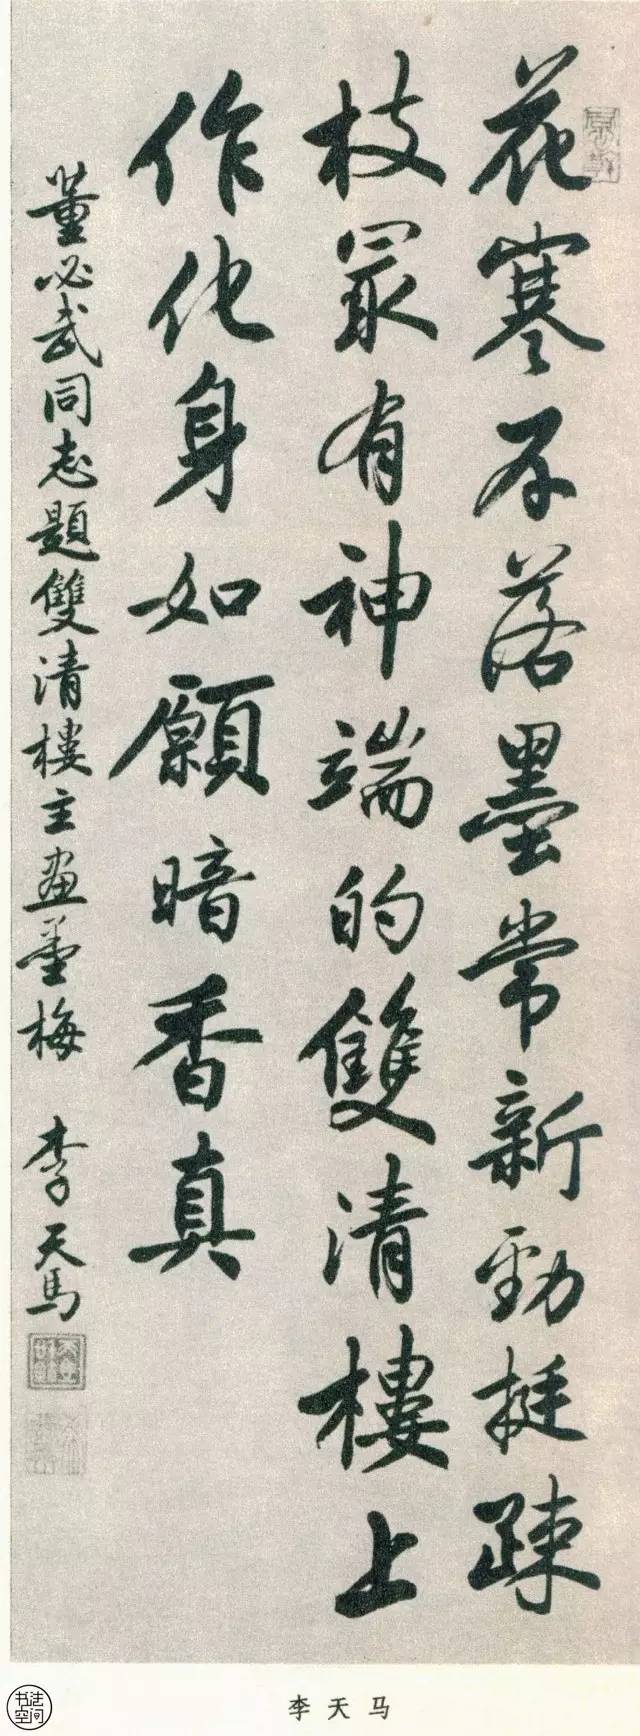 花寒不落墨常新勁挺疎
枝冣有神端的雙清樓上
作化身如願暗香真
董必武同志題雙清樓主畫墨梅 李天馬
李天马
书法空间